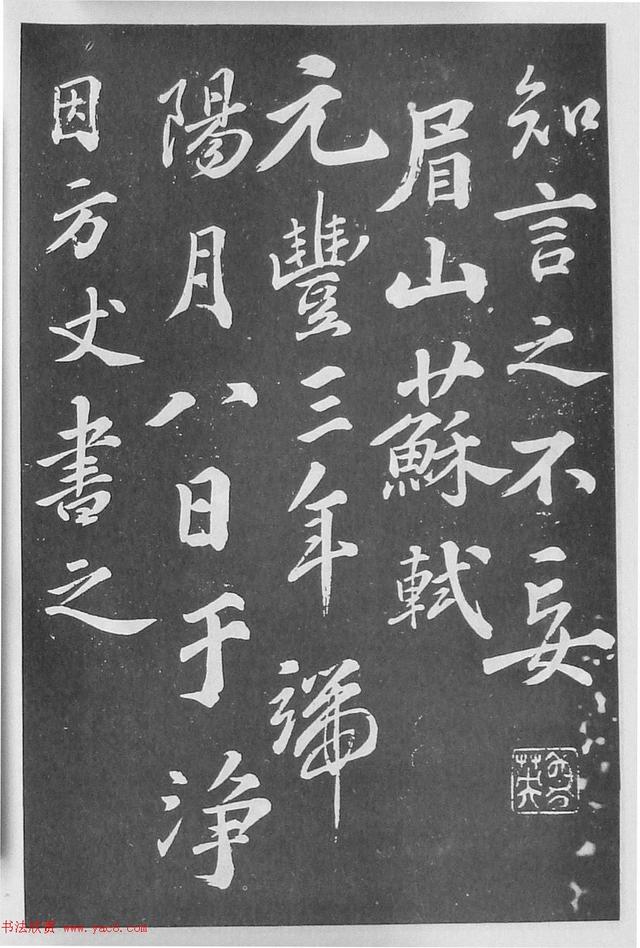 知言之不妄
眉山蘇軾
元豐三年端
陽月八日于淨
因方丈書之
书法欣赏 www.yac8.com